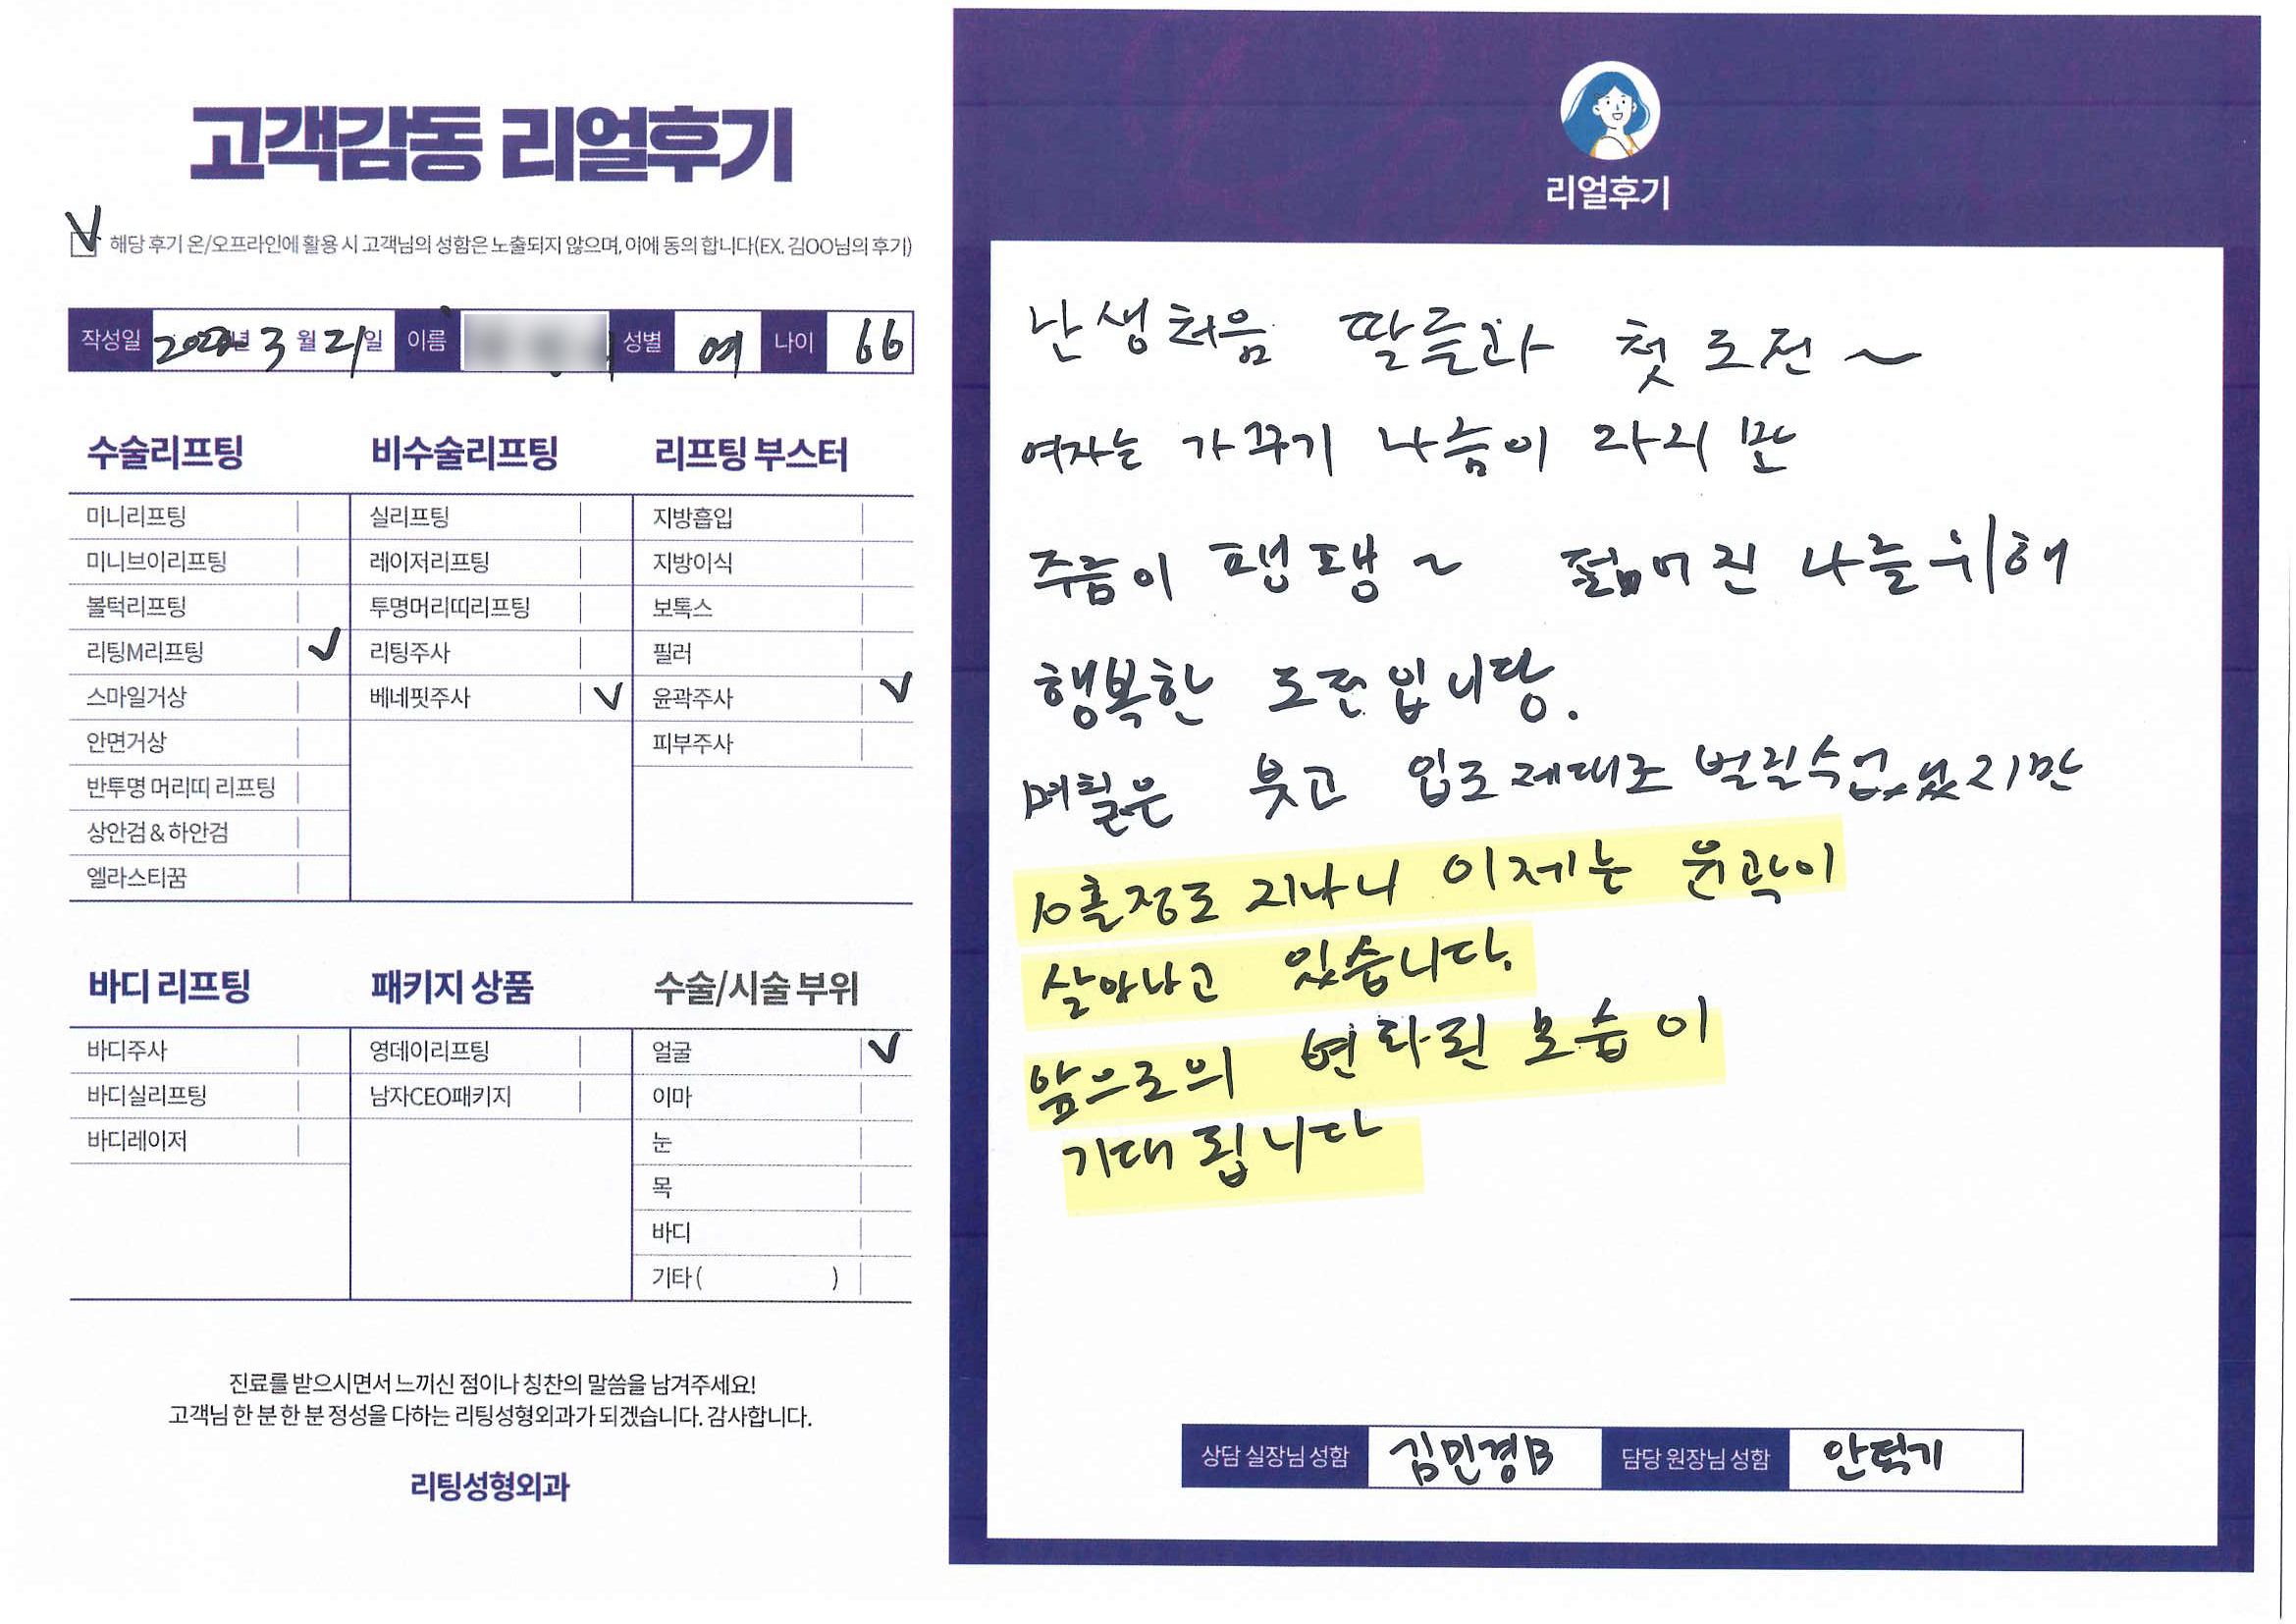 고객감동 리얼후기
해당 후기 온/오프라인에 활용 시 고객님의 성함은 노출되지 않으며, 이에 동의 합니다(EX. 김OO님의 후기)
작성일 년 3 월 21 일 이름 성별 여 나이 66
수술리프팅
미니리프팅
미니브이리프팅
볼턱리프팅
리팅M리프팅
스마일거상
안면거상
반투명 머리띠 리프팅
상안검 & 하안검
엘라스티꿈
비수술리프팅
실리프팅
레이저리프팅
투명머리띠리프팅
리팅주사
베네핏주사
리프팅 부스터
지방흡입
지방이식
보톡스
필러
윤곽주사
피부주사
바디 리프팅
바디주사
바디실리프팅
바디레이저
패키지 상품
영데이리프팅
남자CEO패키지
수술/시술 부위
얼굴
이마
눈
목
바디
기타 ( )
진료를 받으시면서 느끼신 점이나 칭찬의 말씀을 남겨주세요!
고객님 한 분 한 분 정성을 다하는 리팅성형외과가 되겠습니다. 감사합니다.
리팅성형외과
리얼후기
난생처음 딸들과 첫 도전~
여자는 가꾸기 나름이 라지만
주름이 팽팽~ 젊어진 나를위해
행복한 도전입니당.
며칠은 붓고 입도제대로 벌릴수없었지만
10흘정도 지나니 이제는 윤곽이
살아나고 있습니다.
앞으로의 변화된 모습이
기대 됩니다
상담 실장님 성함 김민경B 담당 원장님 성함 안덕기